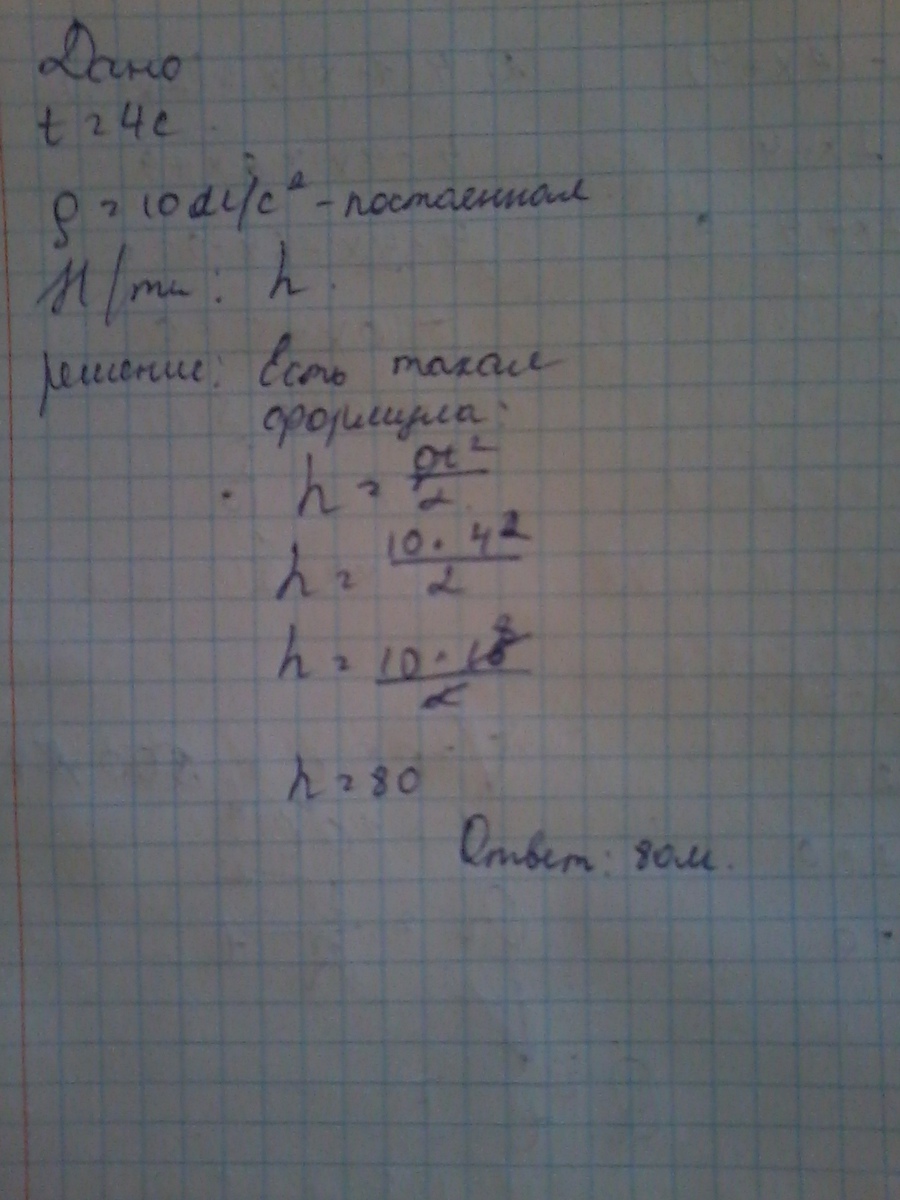 Дано
t = 4с
g = 10м/с² - постоенная
Н/ти: h.
решение: Есть такая
формула:
h = gt²/2
h = 10 · 4²/2
h = 10 · 16 8/2
h = 80
Ответ: 80м.